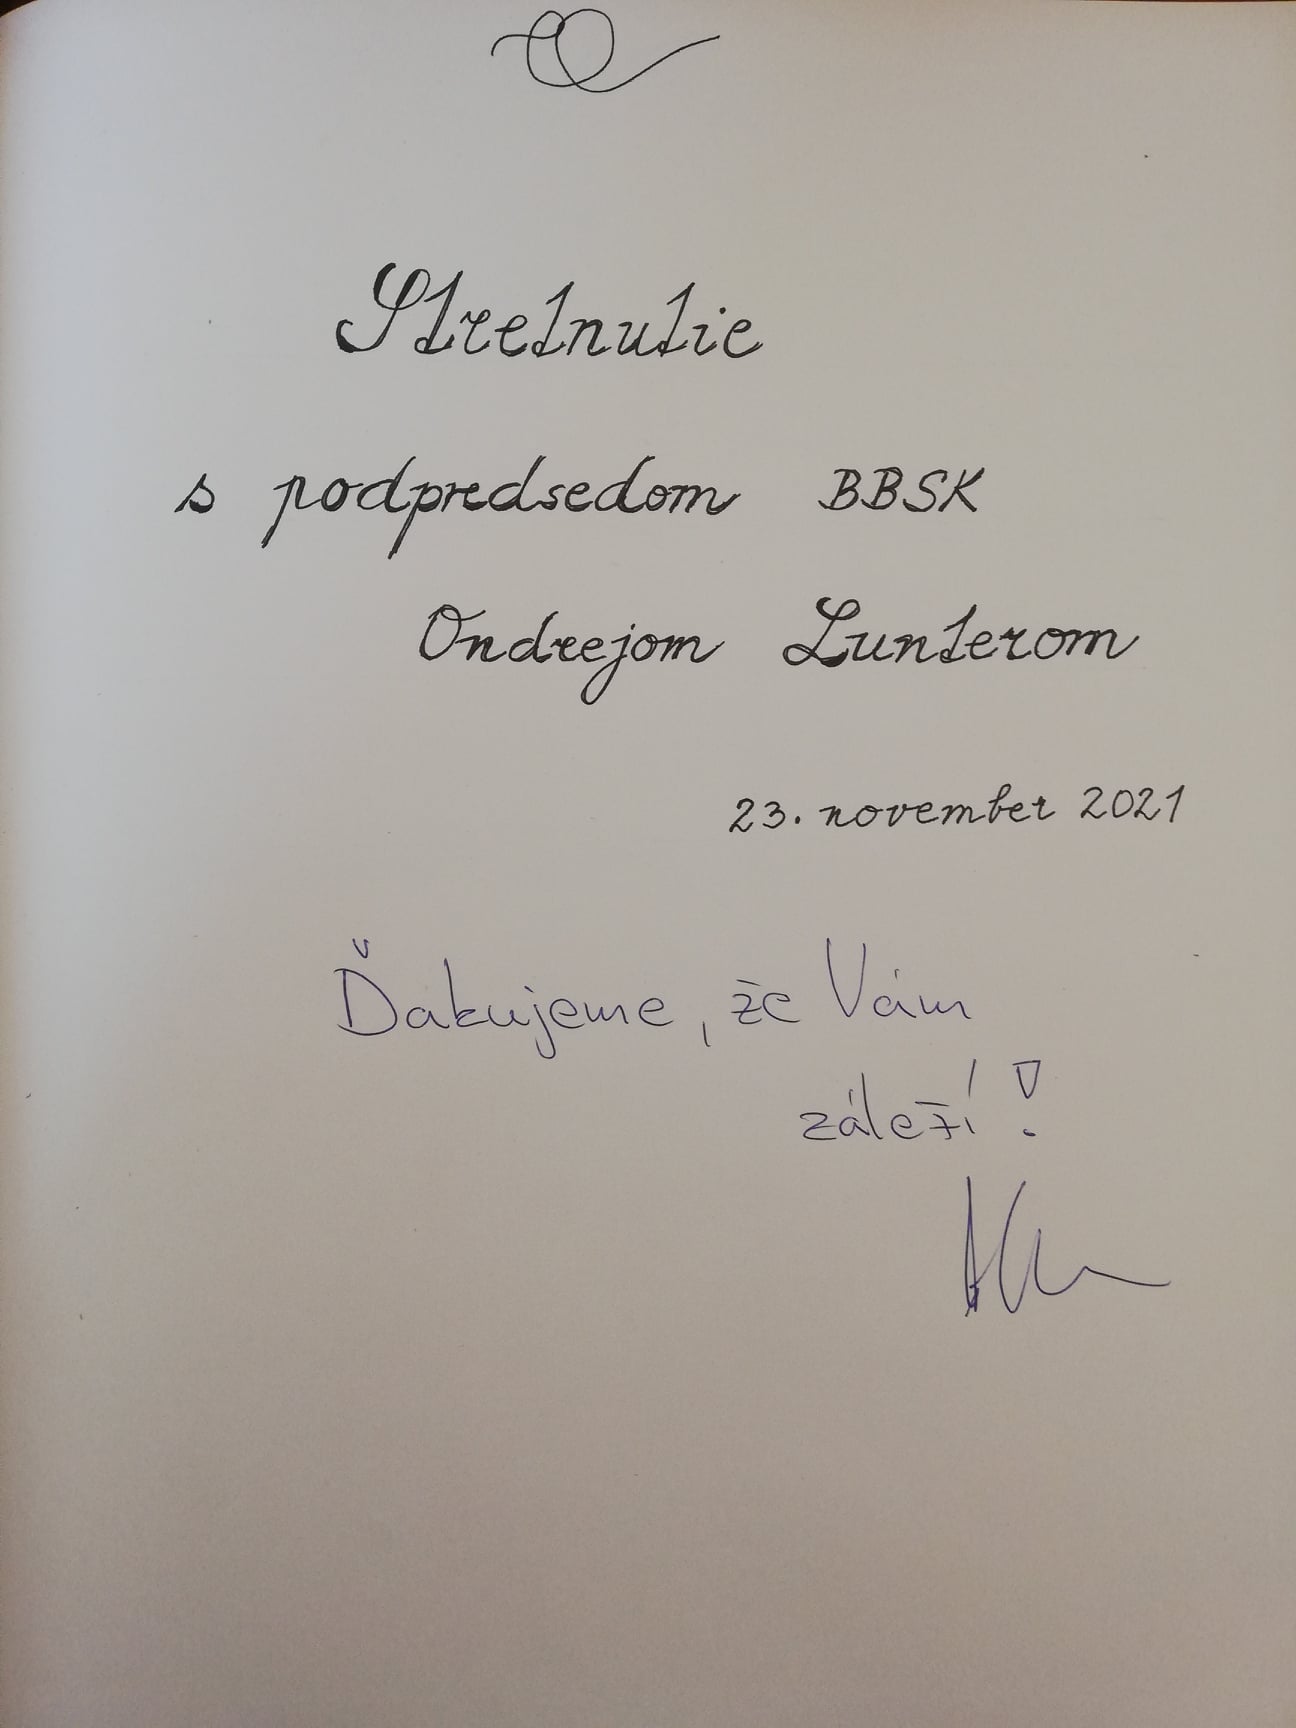 Stretnutie
s podpredsedom BBSK
Ondrejom Lunterom
23. november 2021
Ďakujeme, že Vám
záleží!